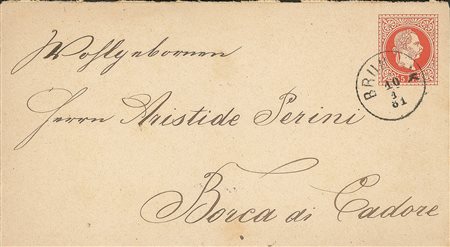 Wohlgebornen
Herrn Aristide Perini
Borca di Cadore
BRU
10
1
81